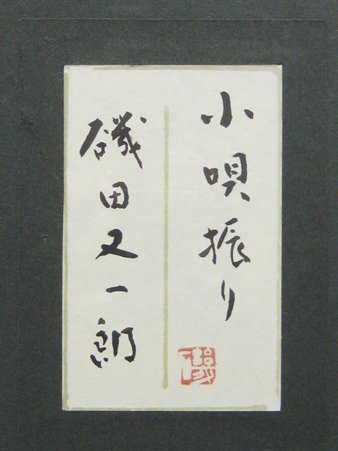 小唄振り
磯田又一郎